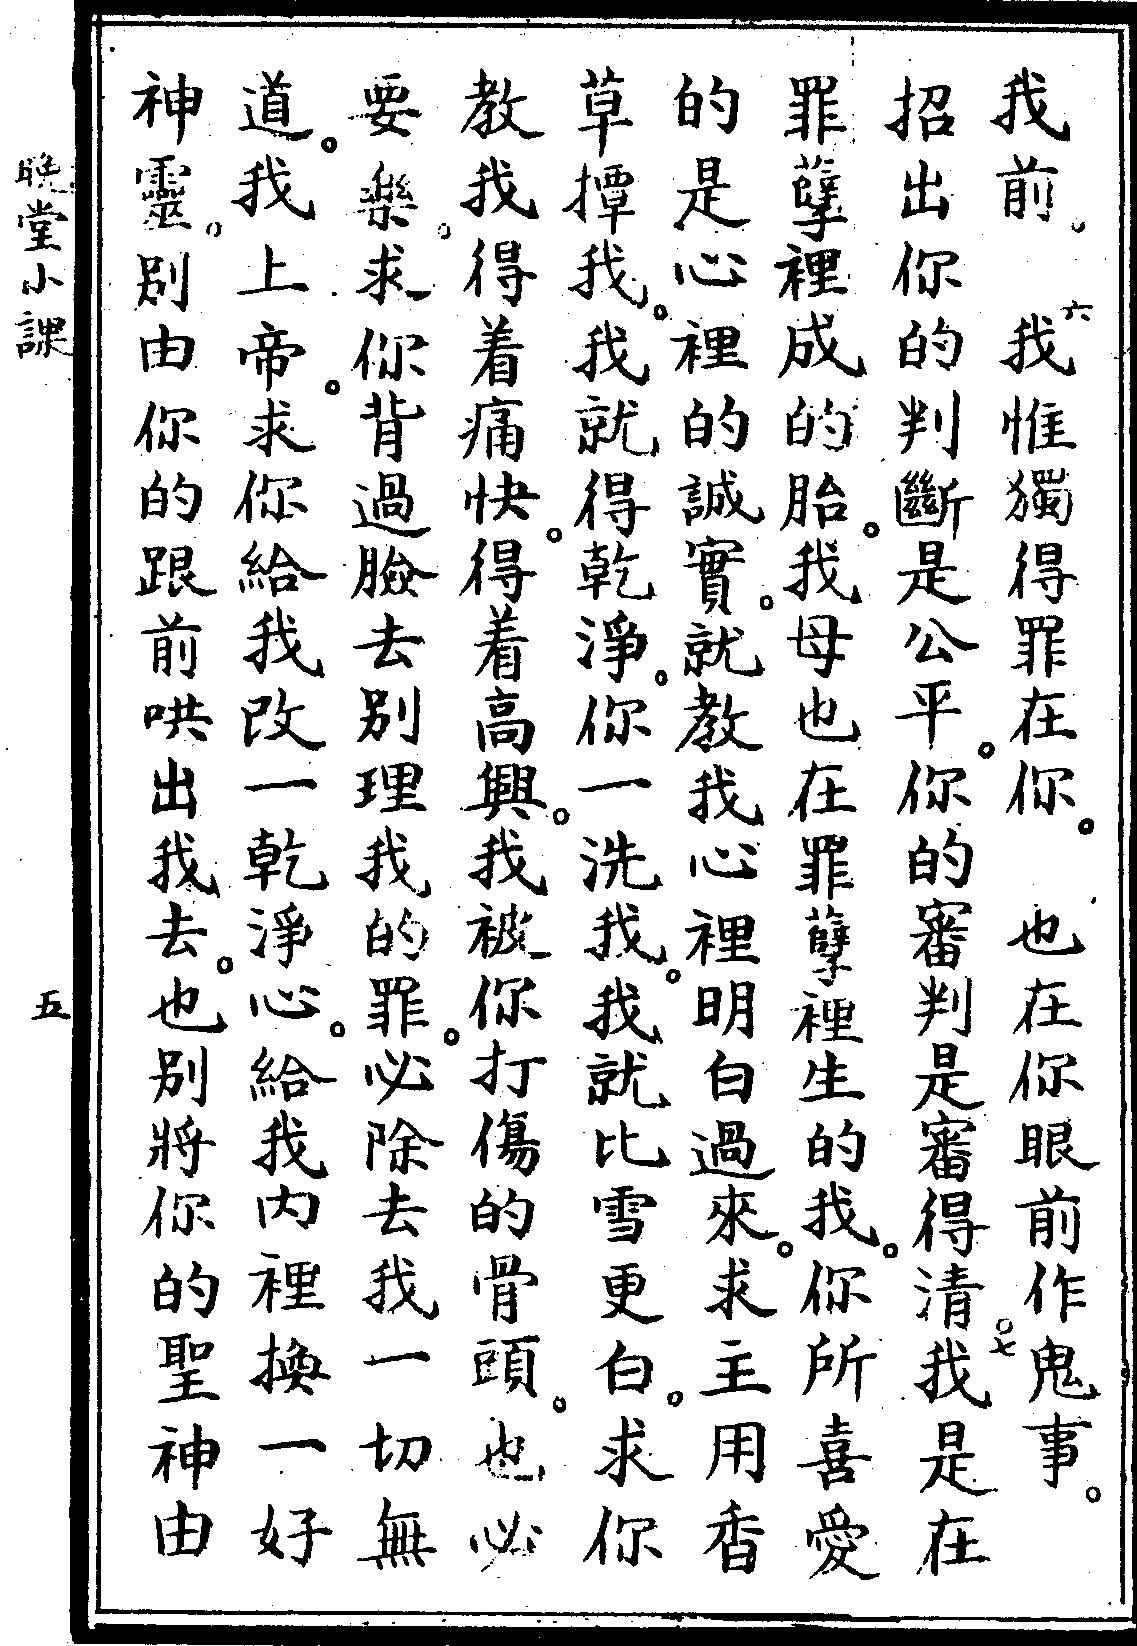 我前。 六我惟獨得罪在你。 也在你眼前作鬼事。
招出你的判斷是公平。你的審判是審得清。七我是在
罪孽裡成的胎。我母也在罪孽裡生的我。你所喜愛
的是心裡的誠實。就教我心裡明白過來。求主用香
草撢我。我就得乾淨。你一洗我。我就比雪更白。求你
教我得着痛快。得着高興。我被你打傷的骨頭。也必
要樂。求你背過臉去別理我的罪。必除去我一切無
道。我上帝。求你給我改一乾淨心。給我內裡換一好
神靈。別由你的跟前哄出我去。也別將你的聖神由
晚堂小課
五